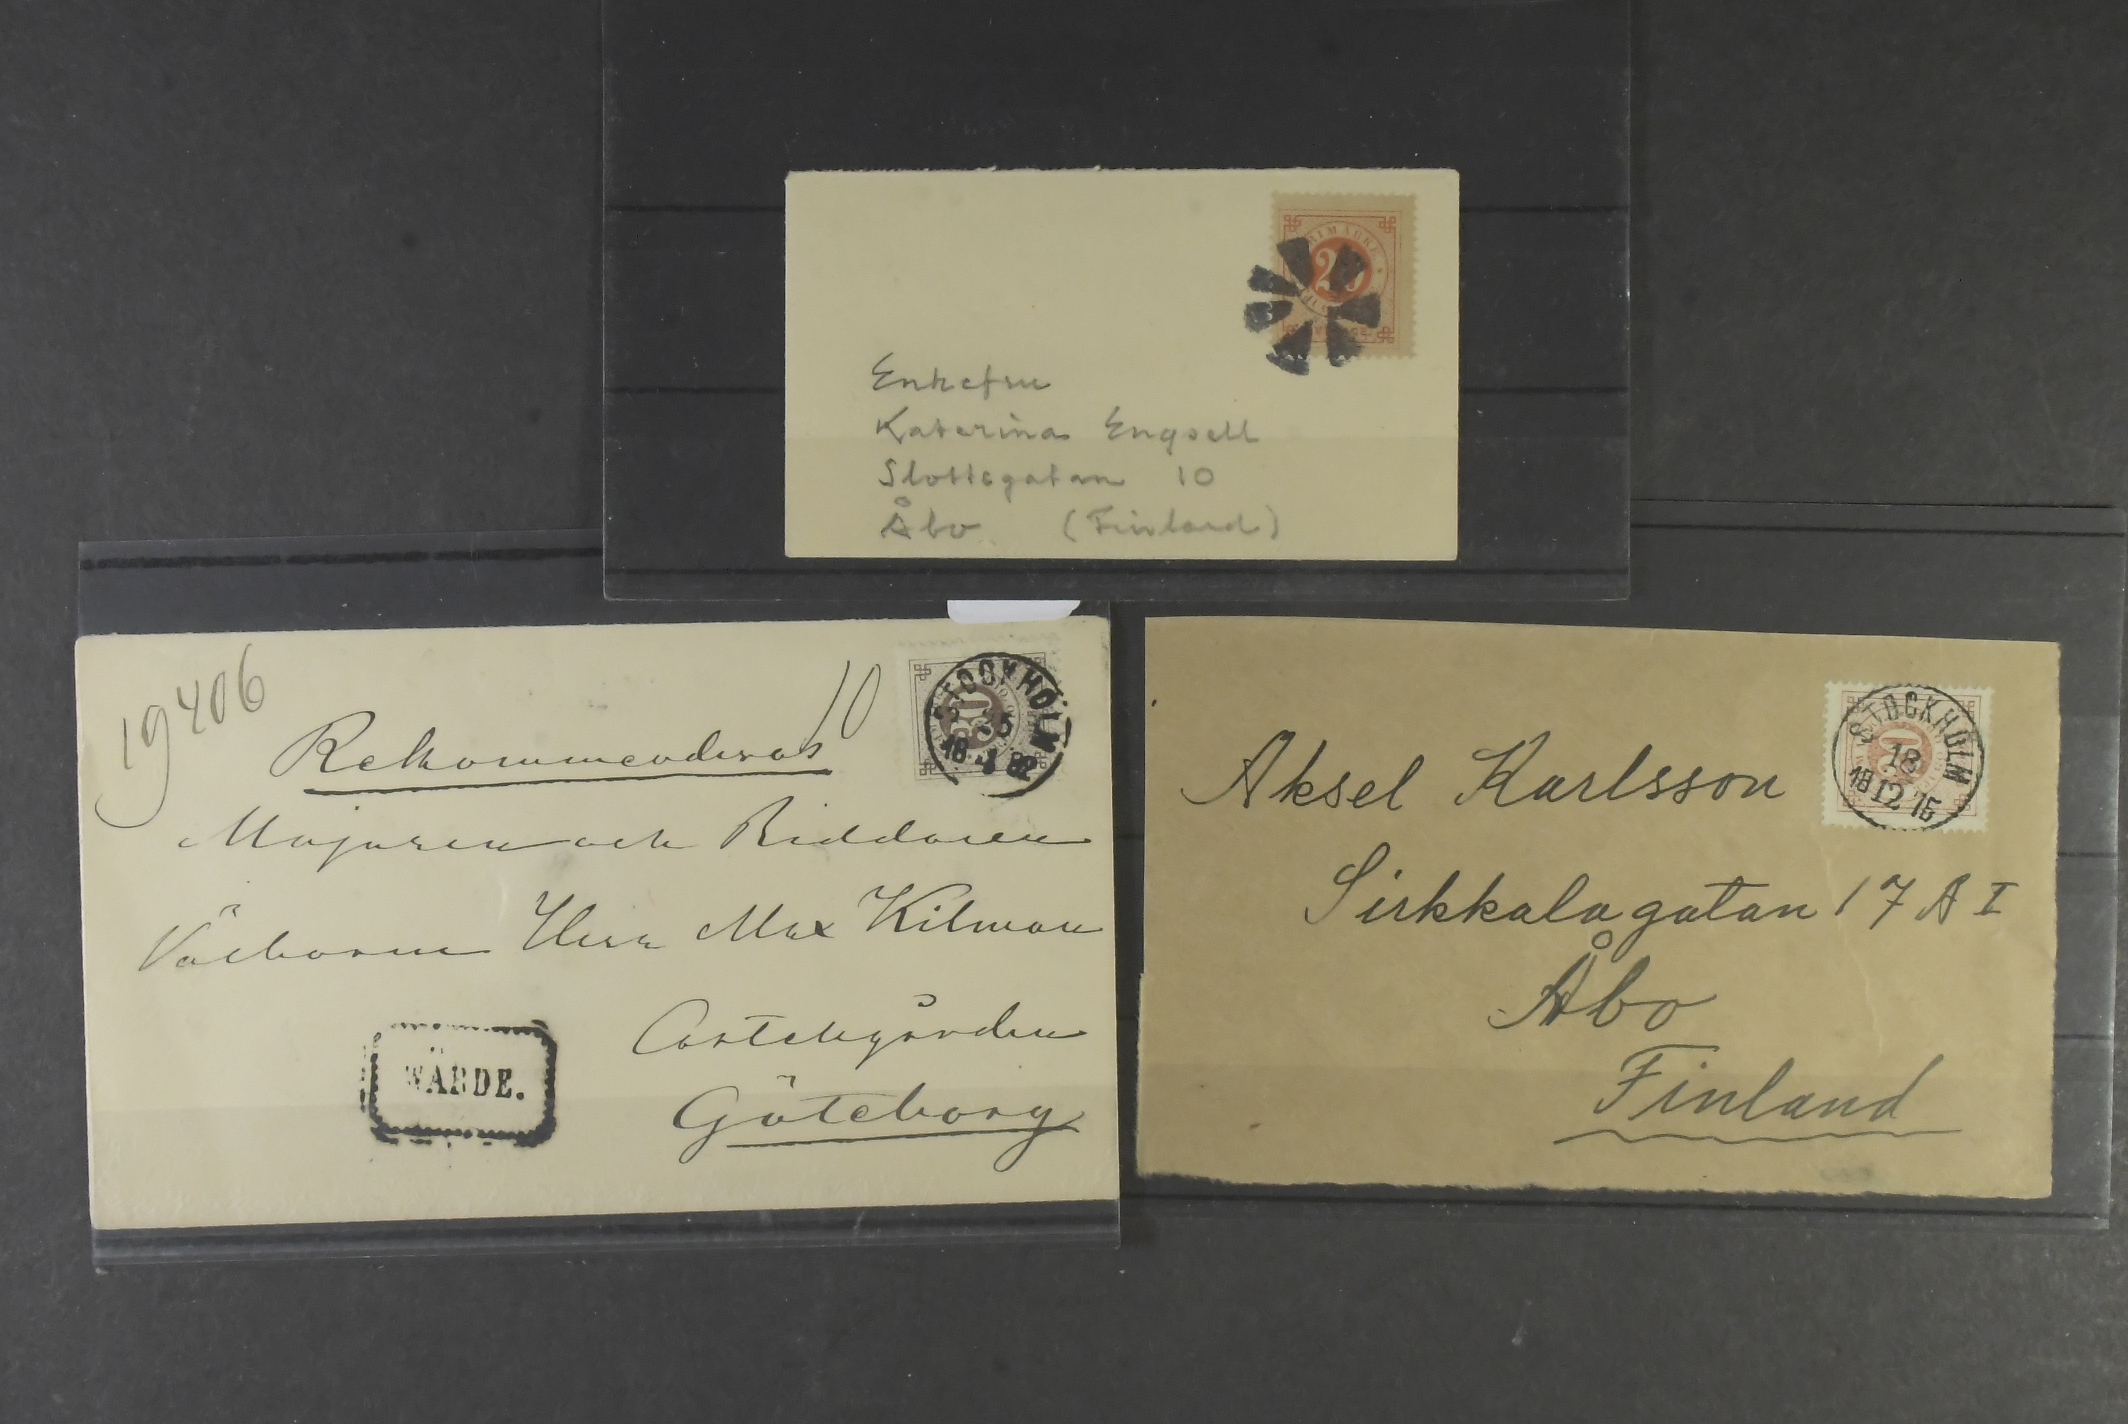 FRIMÄRKE
20
Enkefru
Katarina Engsell
Slottsgatan 10
Åbo (Finland)
19406
10
Rekommenderas
STOCKHOLM
18 82
30
Majoren och Riddaren
Välborne Herr Max Kilman
Göteborg
WÄRDE.
STOCKHOLM
18
18 12 75
20
Aksel Karlsson
Sirkkalagatan 17 A I
Åbo
Finland